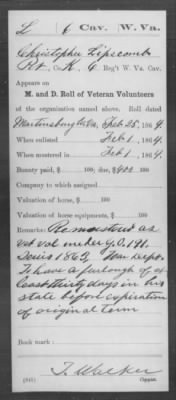 L 6 Cav. W. Va.
Christopher Lipscomb
Pvt., Co. K, 6 Reg't W. Va. Cav.
Appears on
M. and D. Roll of Veteran Volunteers
of the organization named above. Roll dated
Martinsburg W.Va. Feb 25, 1864
When enlisted Feb 1, 1864
When mustered in Feb 1, 1864
Bounty paid, $ 100; due, $400 100
Company to which assigned
Valuation of horse, $ 100
Valuation of horse equipments, $ 100
Remarks: Remustered as
vet vol under G.O. 191.
Series 1863, War Dept.
To have a furlough of at
least thirty days in his
state before expiration
of original term
Book mark:
T. Walker
(341) Copyist.